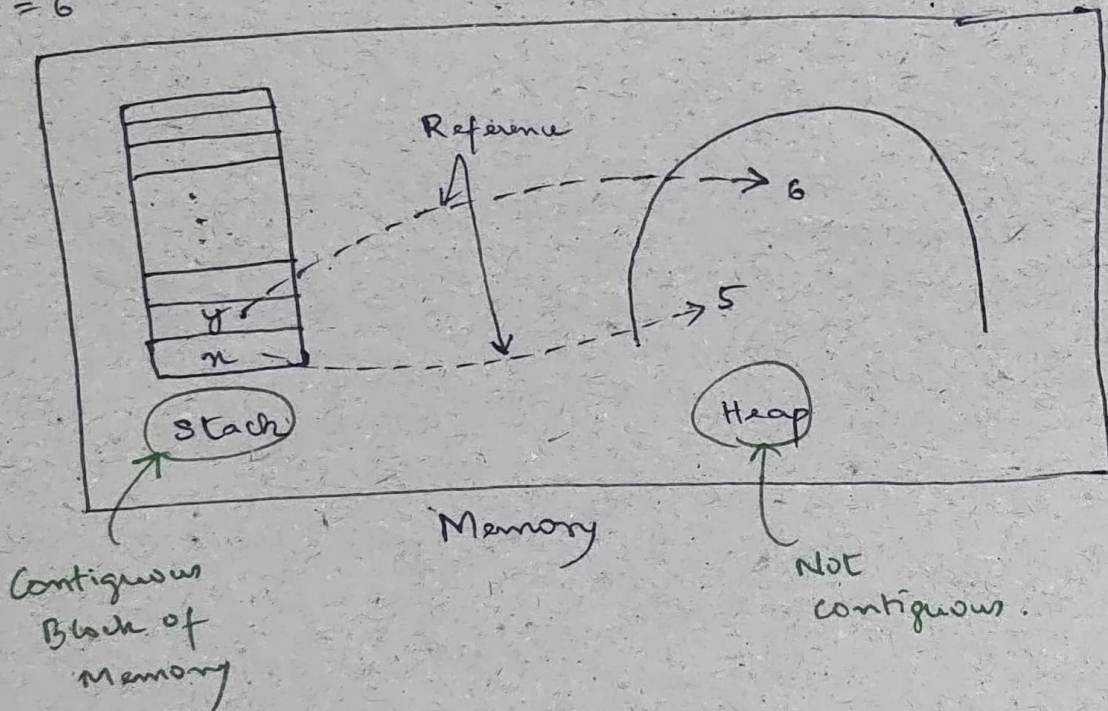 = 6
Reference
6
5
y
x
Stack
Heap
Memory
Contiguous
Block of
Memory
Not
contiguous.